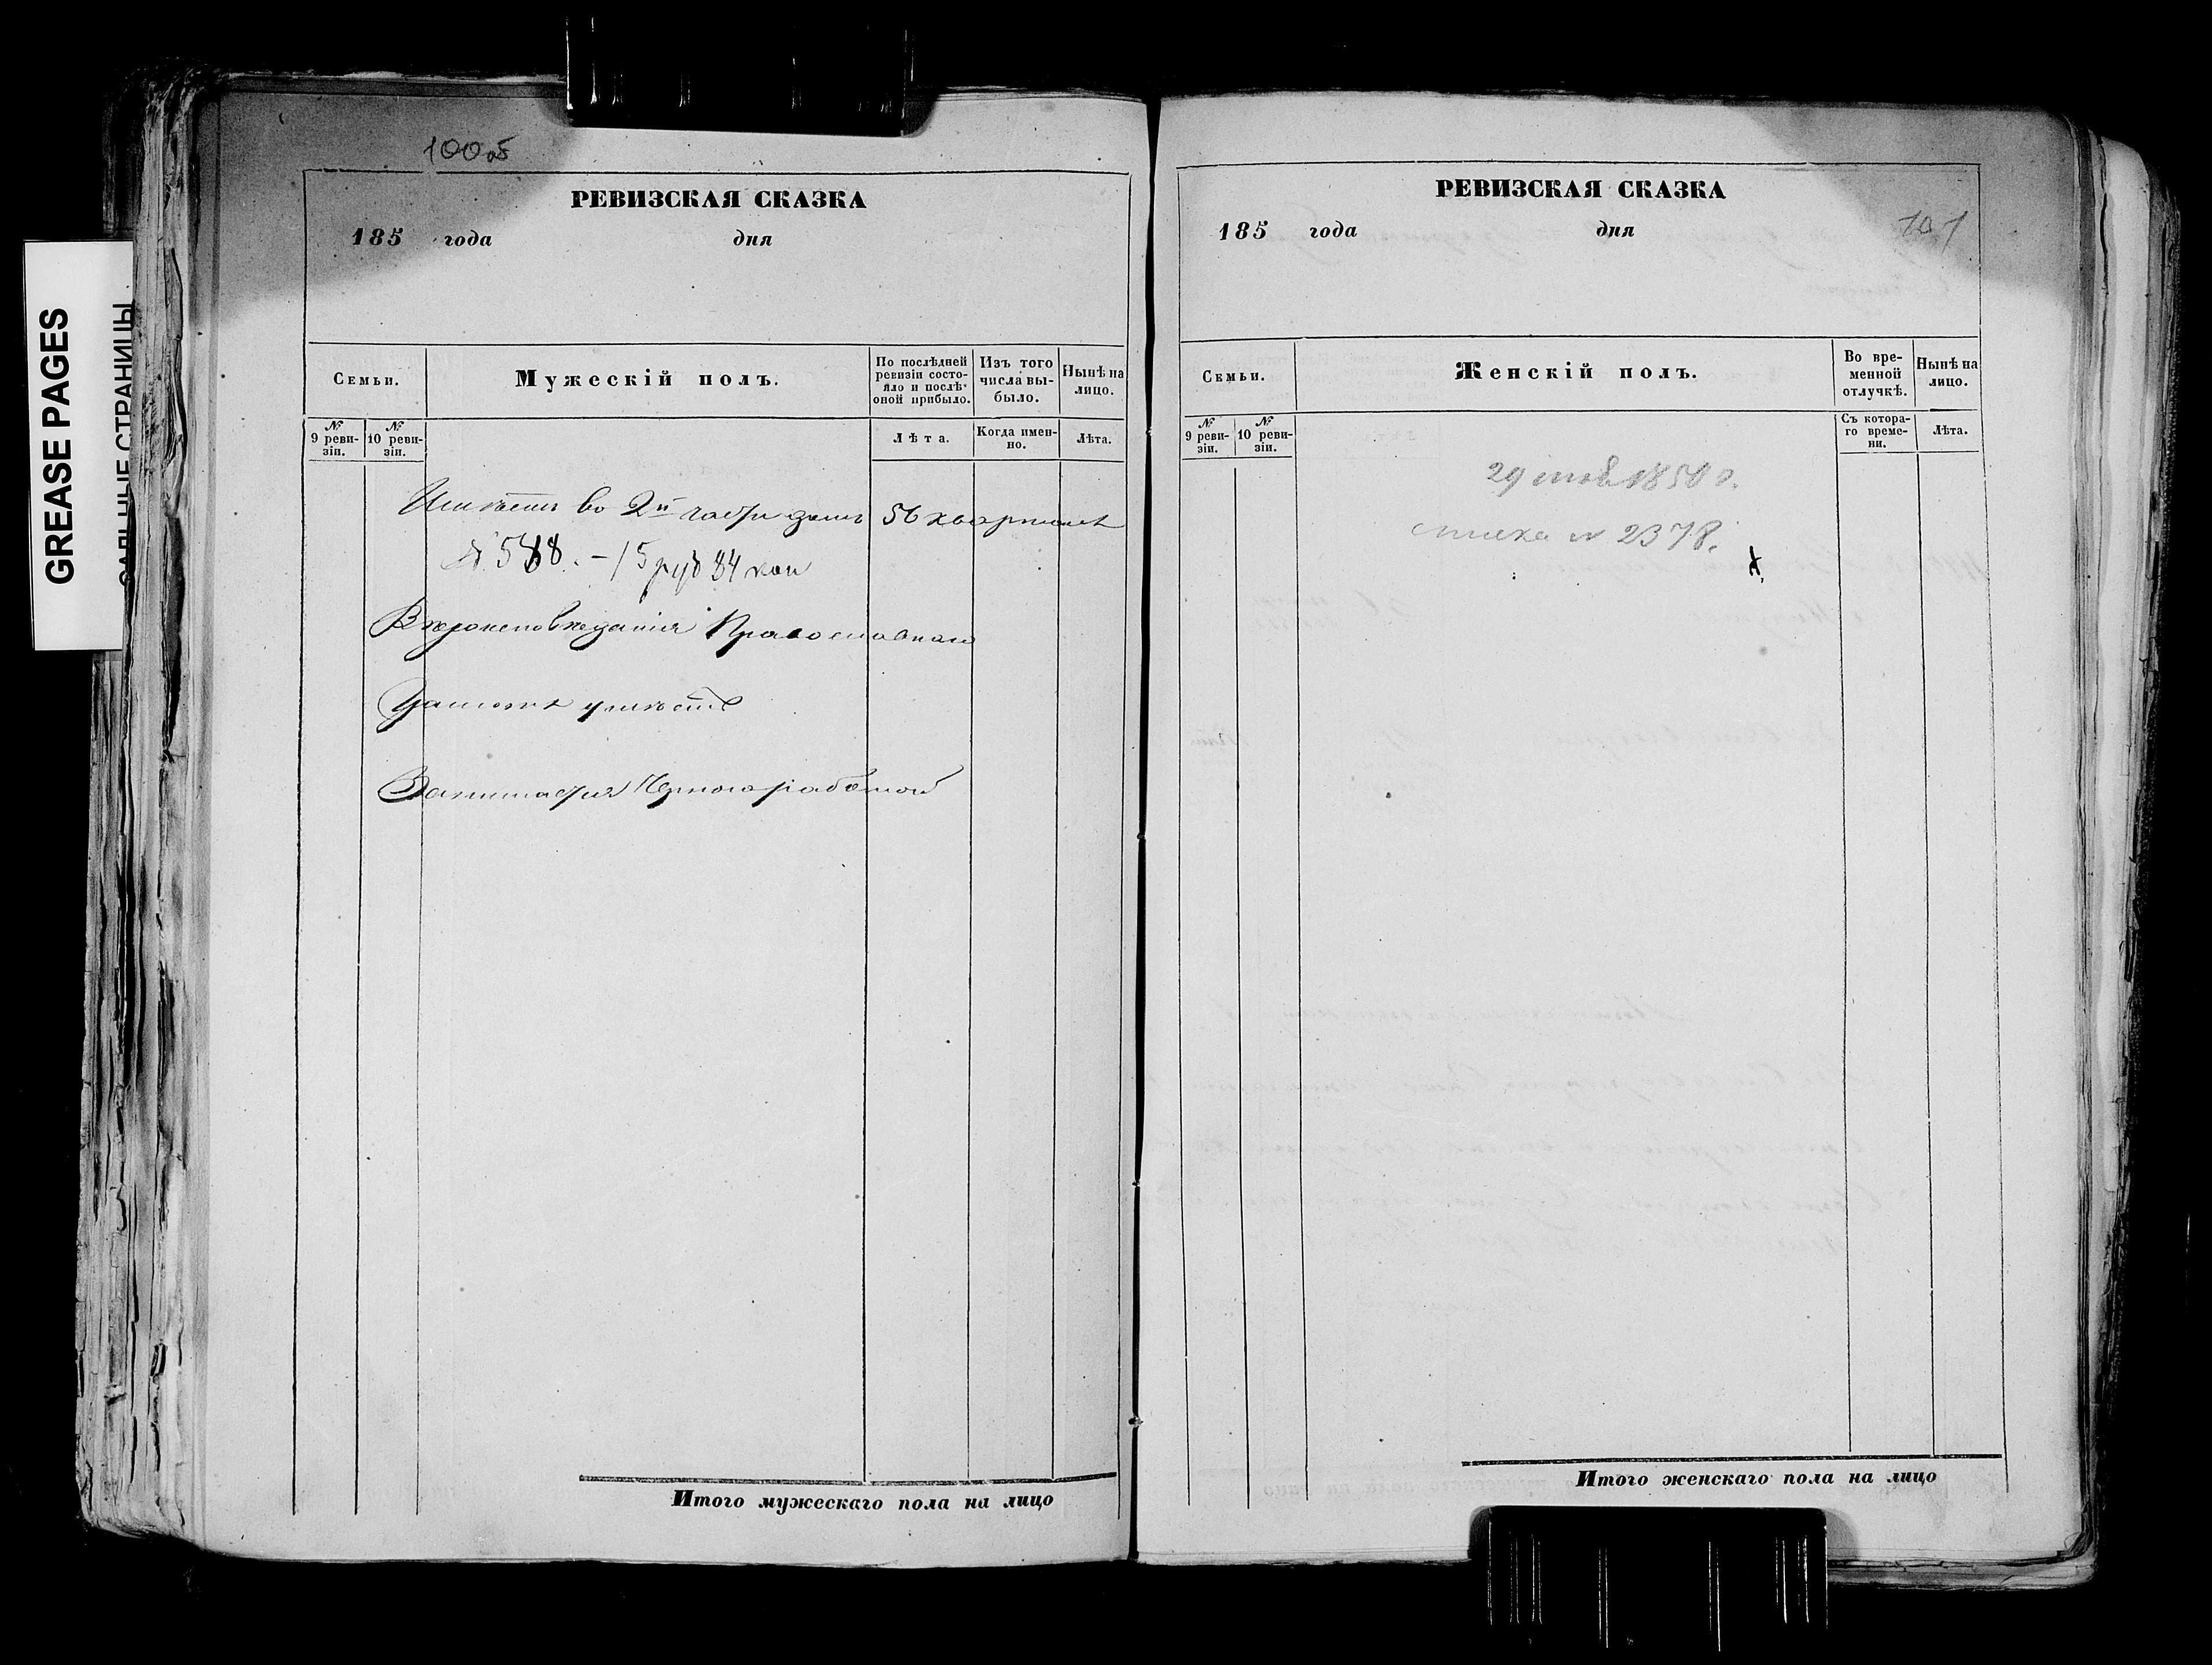 GREASE PAGES
САЛЬНЫЕ СТРАНИЦЫ
100об
РЕВИЗСКАЯ СКАЗКА
185 года дня
Семьи.
Мужескій полъ.
По послѣдней ревизіи состо-
яло и послѣ
оной прибыло.
Изъ того
числа вы-
было.
Нынѣ на
лицо.
№
9 реви-
зіи.
№
10 реви-
зіи.
Лѣта.
Когда имен-
но.
Лѣта.
Имѣетъ во 2й части домъ 56 квартала
15 руб 84 коп
Вѣроисповеданія Православнаго
Грамотѣ умѣетъ
Занимается Черноработой
Итого мужескаго пола на лицо
РЕВИЗСКАЯ СКАЗКА
101
185 года дня
Семьи.
Женскій полъ.
Во вре-
менной
отлучкѣ.
Нынѣ на
лицо.
№
9 реви-
зіи.
№
10 реви-
зіи.
Съ котора-
го време-
ни.
Лѣта.
29 1850 г.
№ 2378.
Итого женскаго пола на лицо